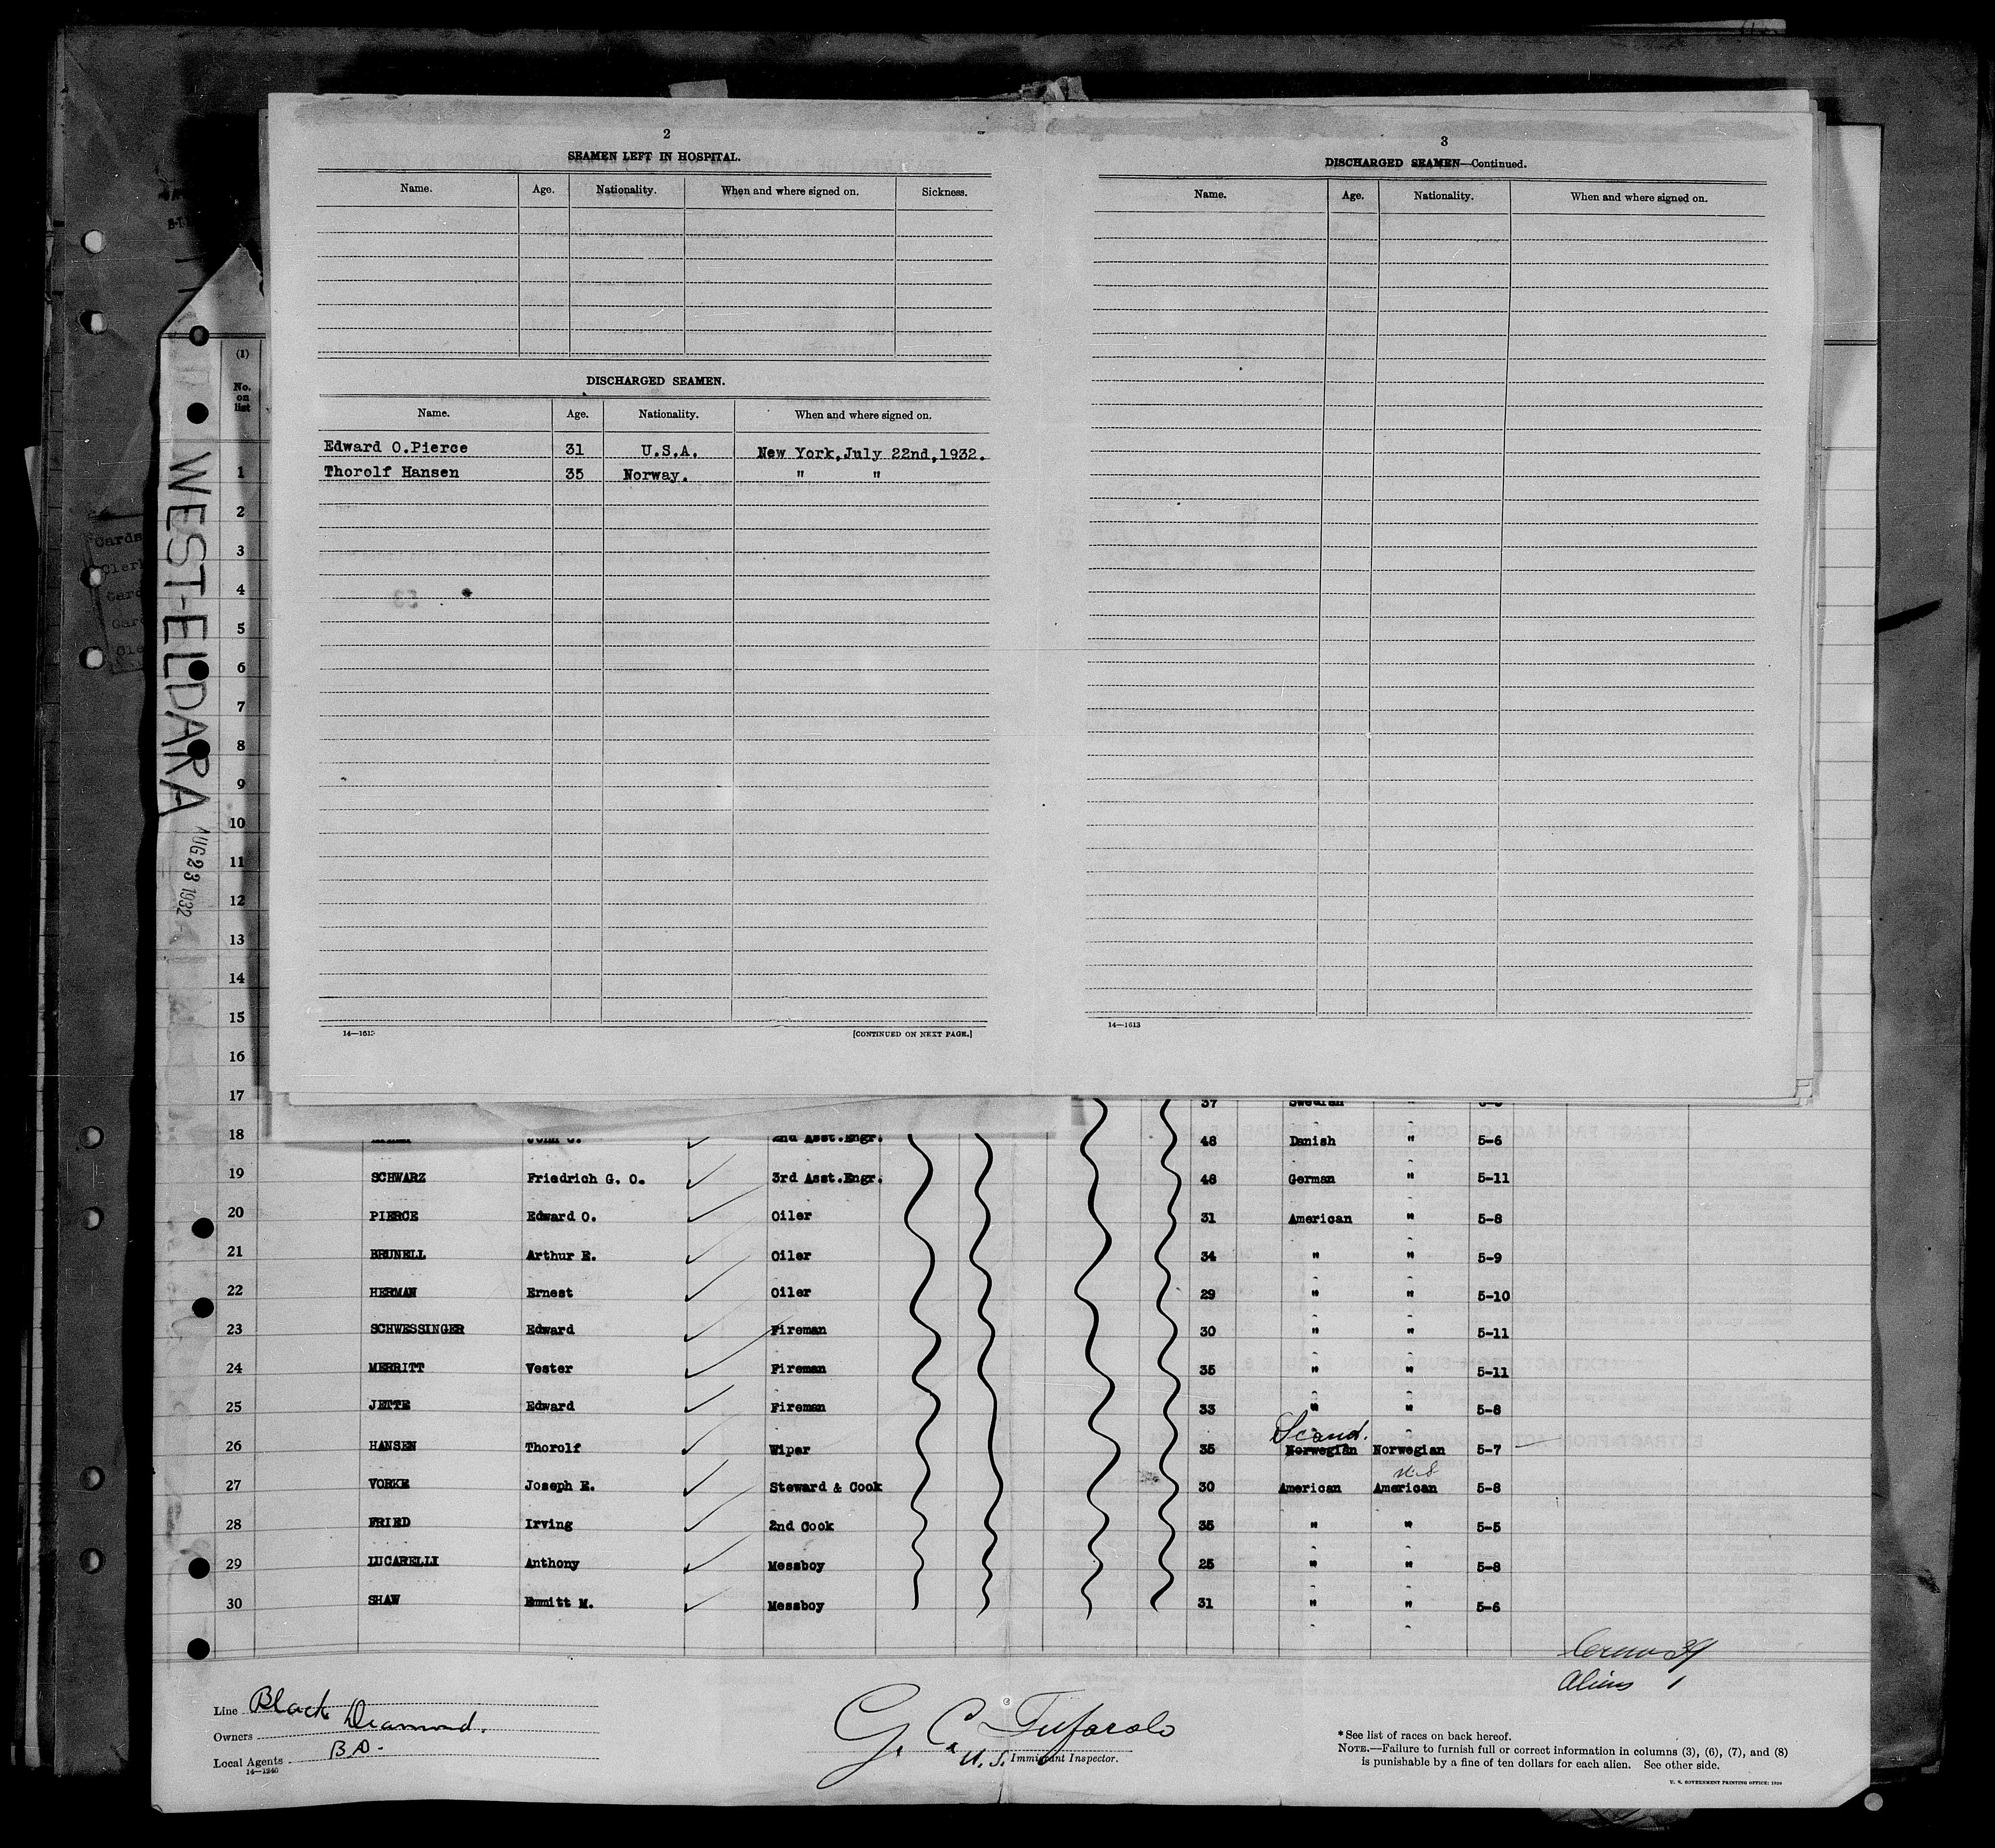 2
SEAMEN LEFT IN HOSPITAL.
Name. Age. Nationality. When and where signed on. Sickness.
DISCHARGED SEAMEN.
Name. Age. Nationality. When and where signed on.
Edward O.Pierce 31 U.S.A. New York,July 22nd,1932.
Thorolf Hansen 35 Norway. " "
14—1613
[CONTINUED ON NEXT PAGE.]
3
DISCHARGED SEAMEN—Continued.
Name. Age. Nationality. When and where signed on.
14—1613
WEST-ELDARA
AUG 23 1932
Cards
(1)
No. on list
1
2
3
4
5
6
7
8
9
10
11
12
13
14
15
16
17 37 "
18 John 2nd Asst.Engr. 48 Danish " 5-6
19 SCHWARZ Friedrich G. O. 3rd Asst.Engr. 48 German " 5-11
20 PIERCE Edward O. Oiler 31 American " 5-8
21 BRUNELL Arthur E. Oiler 34 " " 5-9
22 HERMAN Ernest Oiler 29 " " 5-10
23 SCHWESSINGER Edward Fireman 30 " " 5-11
24 MERRITT Vester Fireman 35 " " 5-11
25 JETTE Edward Fireman 33 " " 5-8
Scand.
26 HANSEN Thorolf Wiper 35 Norwegian Norwegian 5-7
U.S
27 VORKE Joseph E. Steward & Cook 30 American American 5-8
28 FRIED Irving 2nd Cook 35 " " 5-5
29 LUCARELLI Anthony Messboy 25 " " 5-8
30 SHAW Emmitt M. Messboy 31 " " 5-6
Crew
Aliens 1
Line Black Diamond.
Owners
Local Agents B D.
14—1240
G. C. Tufarolo
U.S. Immigrant Inspector.
*See list of races on back hereof.
NOTE.—Failure to furnish full or correct information in columns (3), (6), (7), and (8)
is punishable by a fine of ten dollars for each alien. See other side.
U. S. GOVERNMENT PRINTING OFFICE: 1929